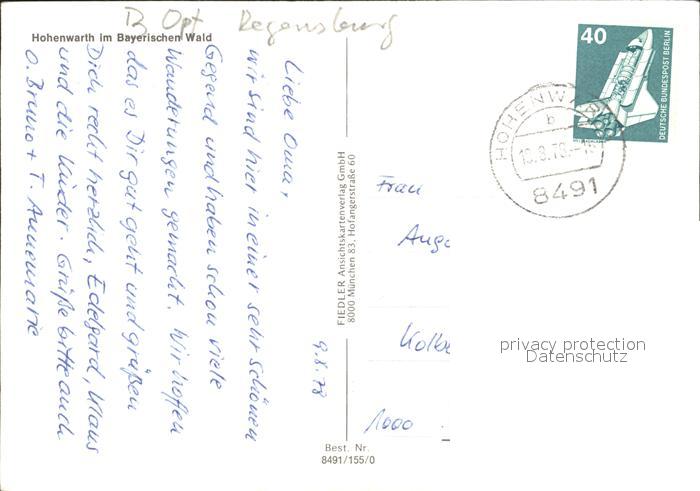 B Opf Regensburg
Hohenwarth im Bayerischen Wald
Liebe Oma,
wir sind hier in einer sehr schönen
Gegend und haben schon viele
Wanderungen gemacht. Wir hoffen
das es Dir gut geht und grüßen
Dich recht herzlich, Edelgard, Klaus
und die Kinder. Grüße bitte auch
O. Bruno + T. Annemarie
9.8.78
FIEDLER Ansichtskartenverlag GmbH
8000 München 83, Hofangerstraße 60
Best. Nr.
8491/155/0
40
DEUTSCHE BUNDESPOST BERLIN
HOHENWAR
b
10.8.78.-
8491
Frau
Ange
Kolbe
1000
privacy protection
Datenschutz